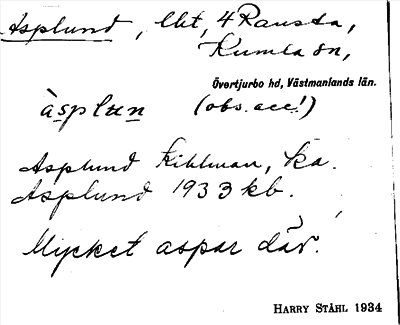 Asplund, lht, 4 Ransta,
Kumla sn,
Övertjurbo hd, Västmanlands län.
àsplun (obs. acc!)
Asplund Kihlman, ka.
Asplund 1933 kb.
Mycket aspar där.
HARRY STÅHL 1934